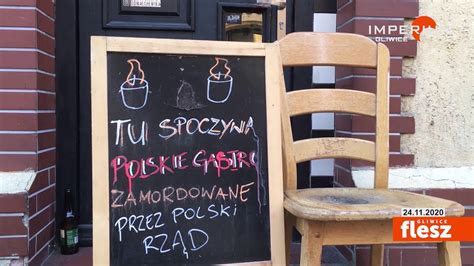 IMPERIUM
GLIWICE
TU SPOCZYWA
POLSKIE GASTRO
ZAMORDOWANE
PRZEZ POLSKI
RZĄD
24.11.2020
GLIWICE
flesz